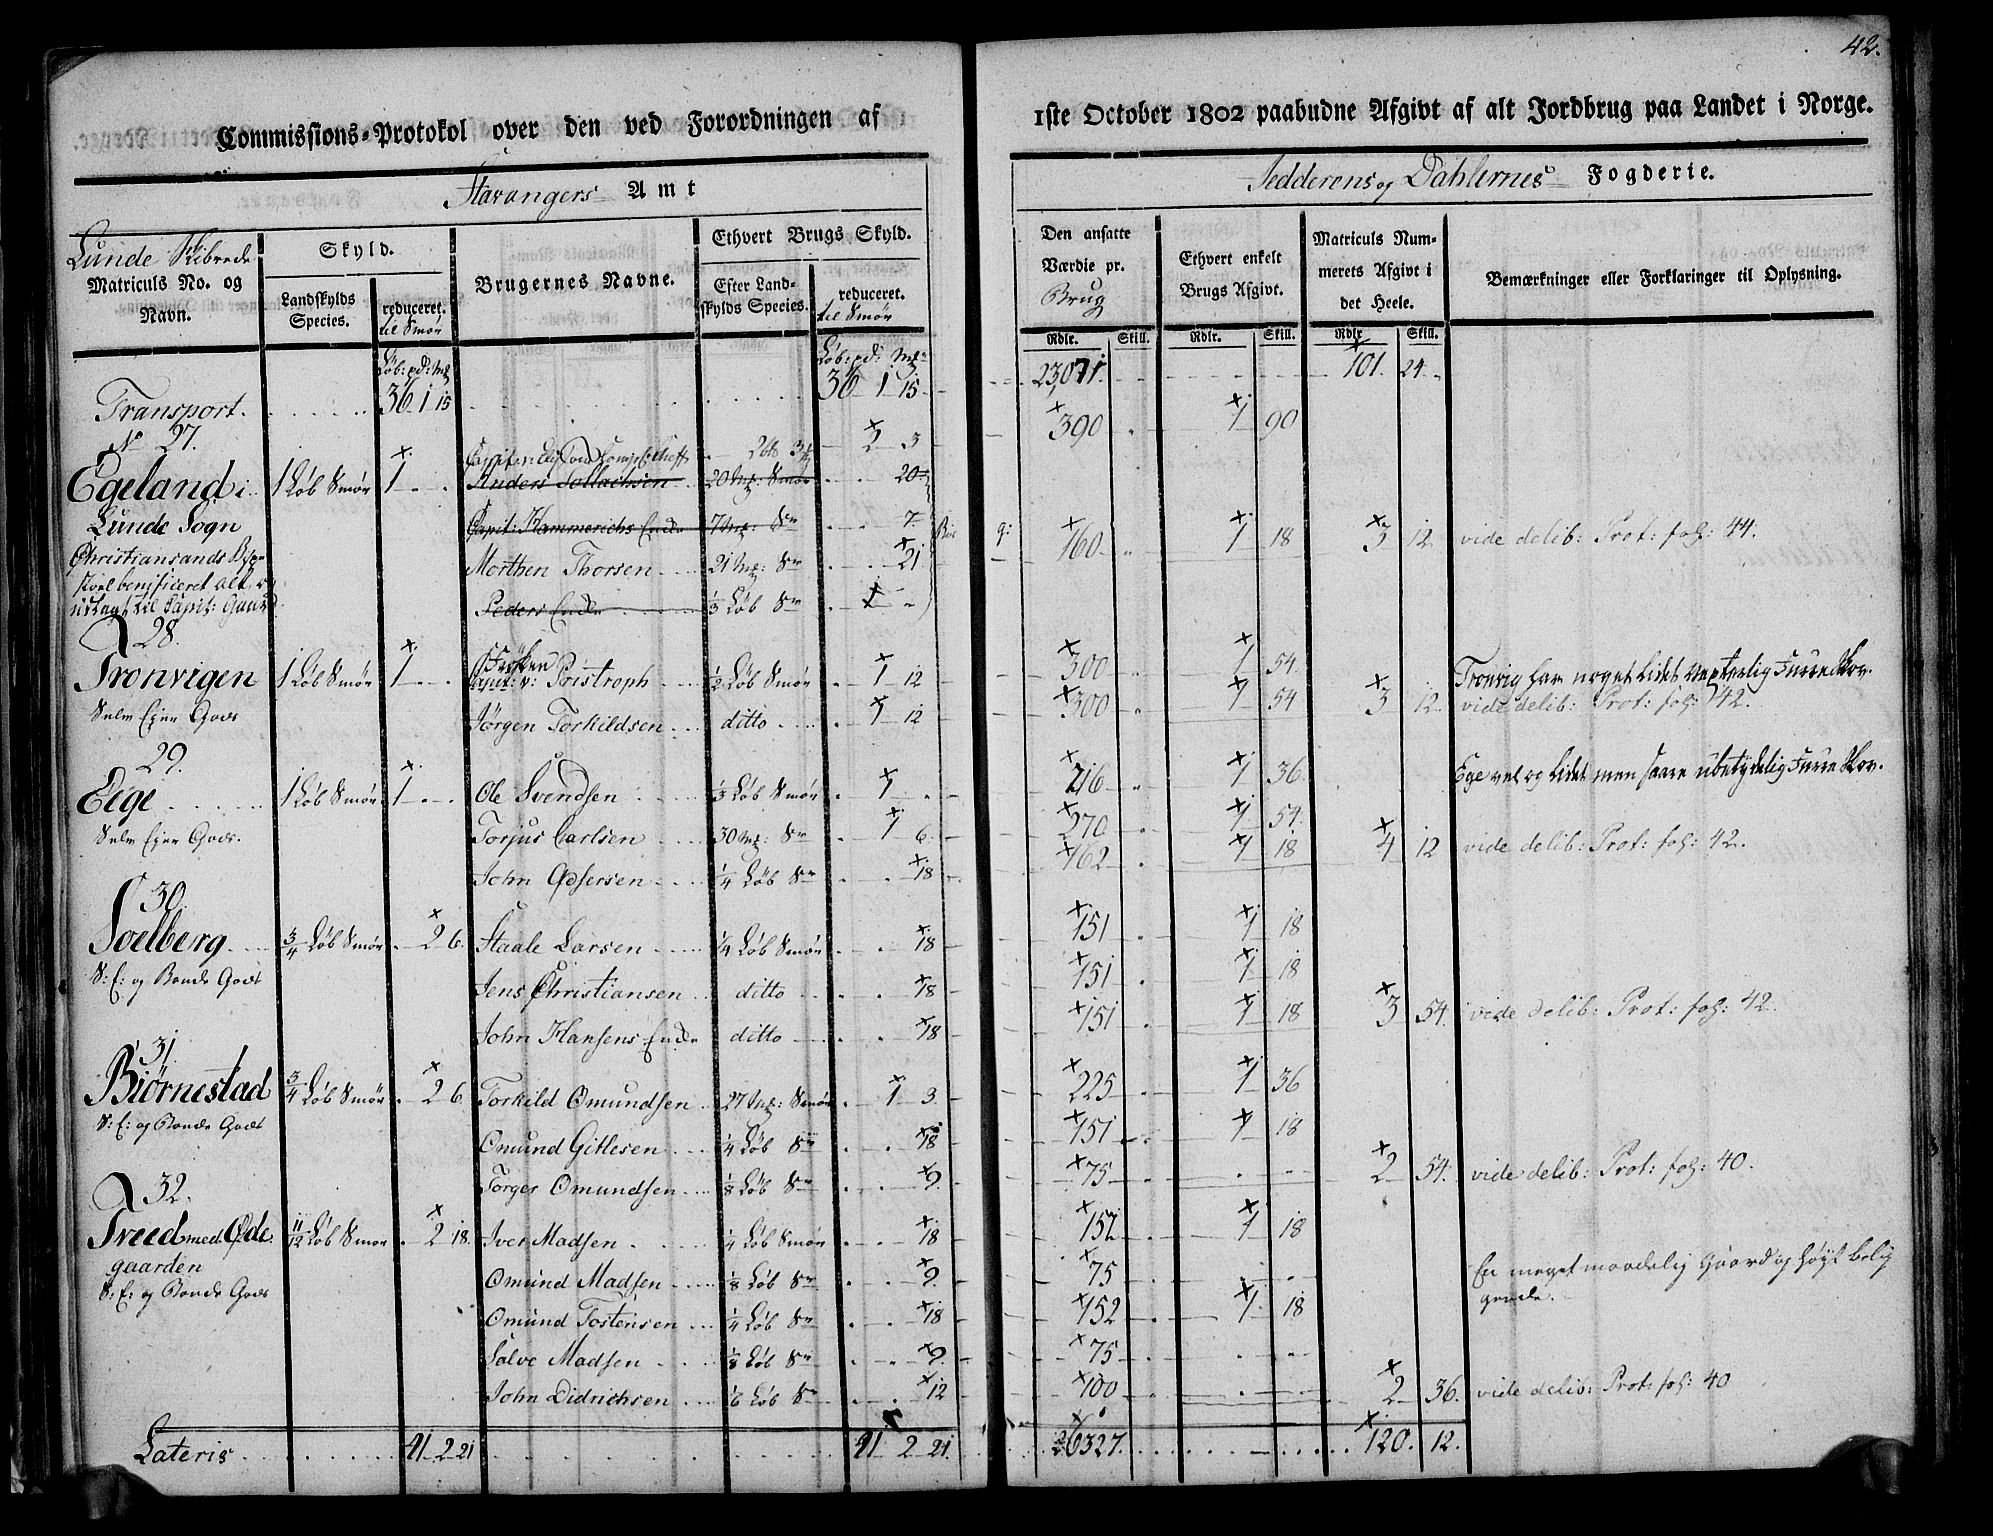 42.
Commissions-Protokol over den ved Forordningen af 1ste October 1802 paabudne Afgivt af alt Jordbrug paa Landet i Norge.
Stavangers Amt
Jedderens og Dahlernes Fogderie.
Lunde Skibrede
Matriculs No. og Navn.
Skyld.
Landskylds Species.
reduceret. til Smör
Brugernes Navne.
Ethvert Brugs Skyld.
Efter Landskylds Species.
reduceret. til Smör
Den ansatte Værdie pr. Brug
Ethvert enkelt Brugs Afgivt.
Matriculs Nummerets Afgivt i det Heele.
Bemærkninger eller Forklaringer til Oplysning.
Rdlr. Skill. Rdlr. Skill. Rdlr. Skill.
Løb: pd: Mk Løb: pd: Mk
Transport. 36 1 15 36 1 15 23,071. 101. 24
No 27. 2 3 390 1 90
Egeland i 1 Løb Smör 1 Anders Tollachsen 20 Mk: Smör 20
Lunde Sogn Capit: Hammerichs Enke 7 Mk: Sm 7
Christiansands Morthen Thorsen 21 Mk: Sm 21 160 1 18 3 12 vide delib: Prot: fol: 44.
benificeret
udlagt til Capit: Gaard Peders Enke 1/3 Løb Sm
28.
Tronvigen 1 Løb Smör 1 Frøken Capit: v: Pristroph 1/2 Løb Smör 1 12 300 1 54 Tronvig har noget lidet Furre Skov.
Selv Ejer Gods Jörgen Torkildsen ditto 1 12 300 1 54 3 12 vide delib: Prot: fol: 42.
29.
Eige 1 Løb Smör 1 Ole Svendsen 1/3 Løb Smör 1 216 1 36 Ege vel og lidet men saare ubetydelig Furre Skov.
Selv Ejer Gods. Torjus Carlsen 30 Mk: Sm 1 6 270 1 54
John Odsersen 1/4 Løb Sm 18 162 1 18 4 12 vide delib: Prot: fol: 42.
30.
Soelberg 3/4 Løb Smör 2 6 Staale Larsen 1/4 Løb Smör 18 151 1 18
S: E: og Bonde Gods Jens Christiansen ditto 18 151 1 18
John Hansens Enke ditto 18 151 1 18 3 54 vide delib: Prot: fol: 42.
31.
Biörnestad 3/4 Løb Smör 2 6 Torkild Omundsen 27 Mk: Smör 1 3 225 1 36
S: E: og Bonde Gods Omund Gitlesen 1/4 Løb Sm 18 151 1 18
Törger Omundsen 1/8 Løb Sm 9 75 2 54. vide delib: Prot: fol: 40.
32.
Treed med Öde 11/12 Løb Smör 2 18. Iver Madsen 1/4 Løb Smör 18 152 1 18
gaarden Omund Madsen 1/8 Løb Sm 9. 75 En meget maadelig Gaard og höyt belig
S: E: og Bonde Gods Omund Tostensen 1/4 Løb Sm 18 152 1 18 gende.
Salve Madsen 1/8 Løb Sm 9. 75
John Didrichsen 1/6 Løb Sm 12 100 2 36. vide delib: Prot: fol: 40
Lateris 41 2 21 41 2 21. 26327. 120. 12.